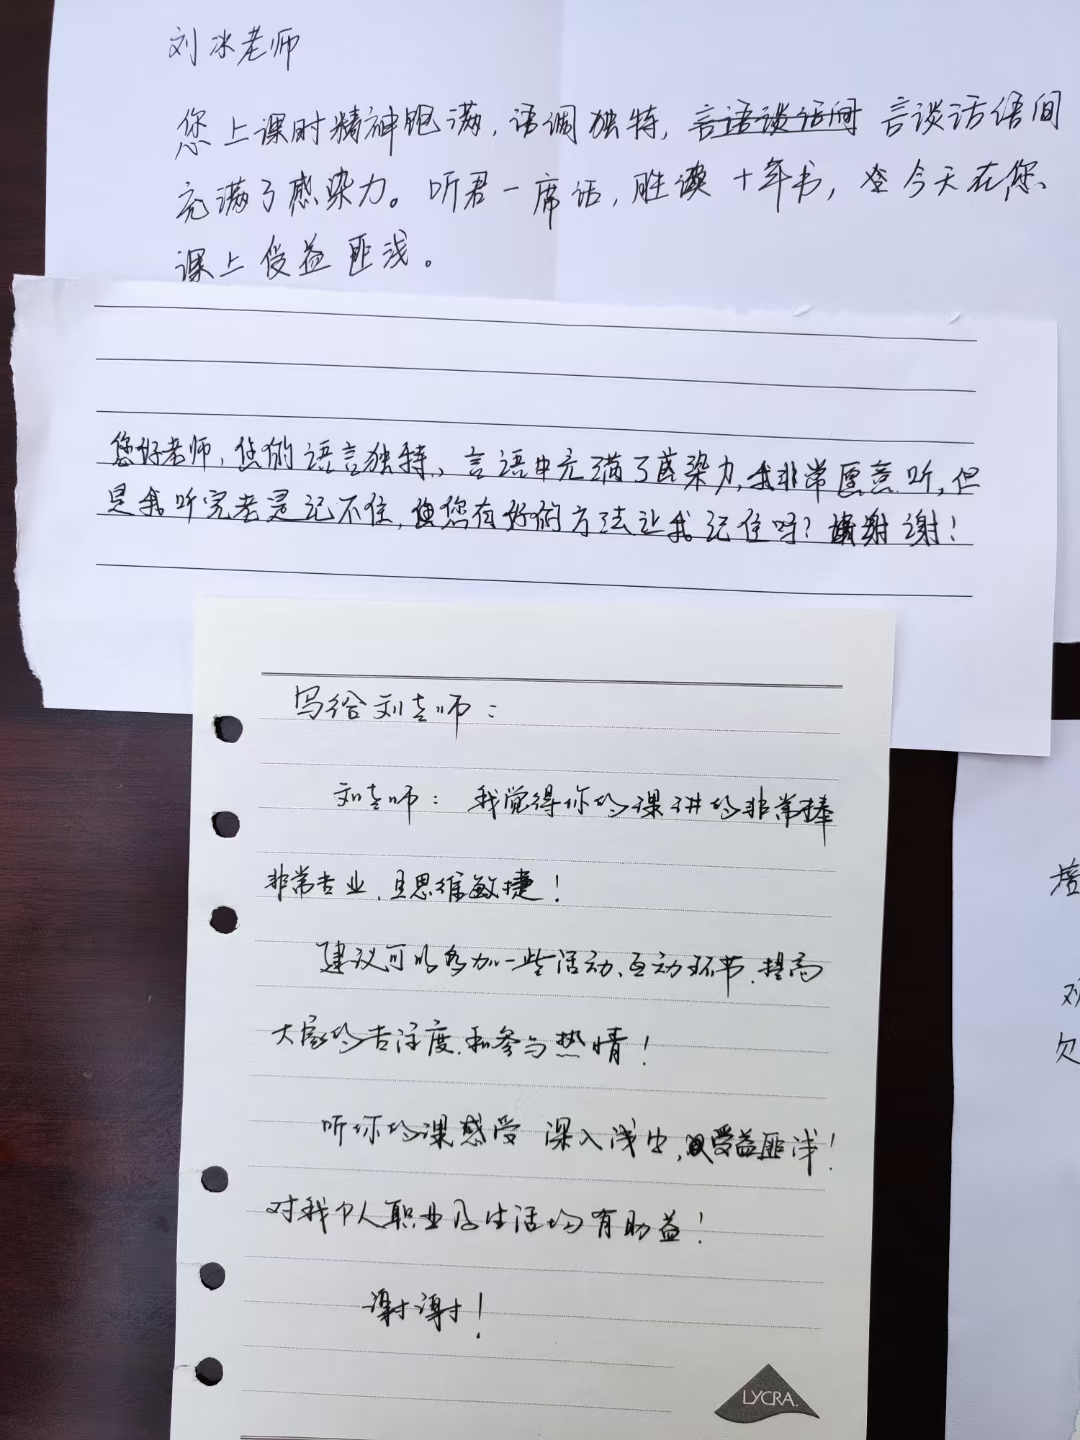 刘冰老师
您上课时精神饱满，语调独特，言语谈话间 言谈话语间
充满了感染力。听君一席话，胜读十年书，今天在您
课上受益匪浅。
您好老师，您的语言独特、言语中充满了感染力，我非常愿意听，但
是我听完老是记不住，您有好的方法让我记住吗？谢谢！
写给刘老师：
刘老师：我觉得你的课讲的非常棒
非常专业，且思维敏捷！
建议可以多加一些活动、互动环节，提高
大家的专注度，和参与热情！
听你的课感受 深入浅出，受益匪浅！
对我个人职业及生活均有助益！
谢谢！
LYCRA
欠